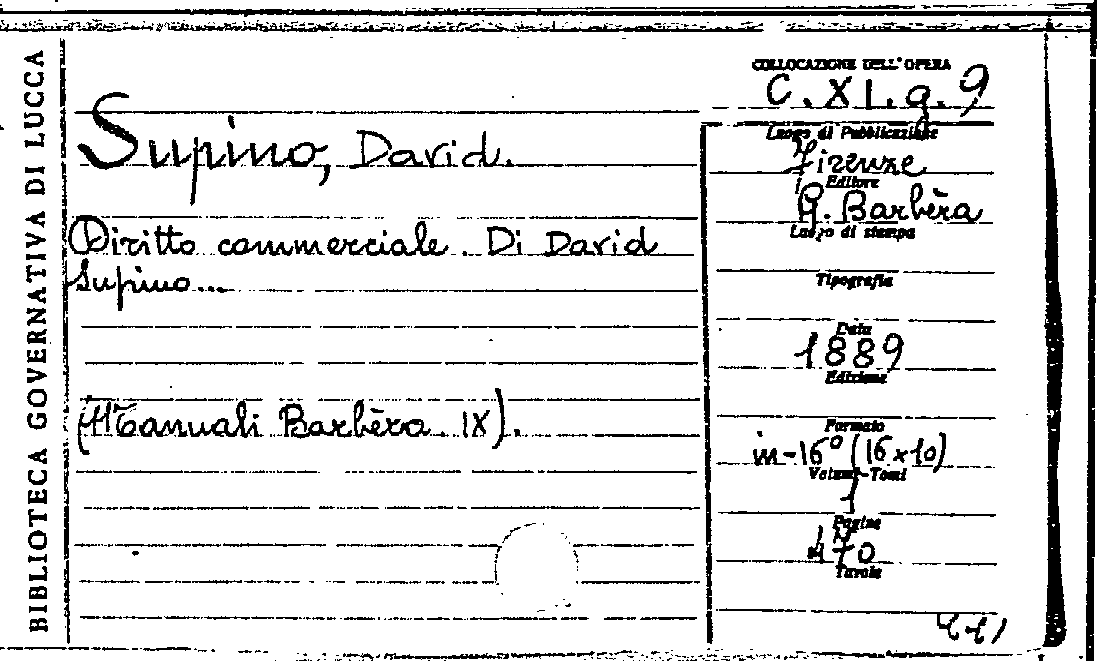 BIBLIOTECA GOVERNATIVA DI LUCCA
COLLOCAZIONE DELL'OPERA
C. XI. g. 9
Supino, David.
Diritto commerciale. Di David
Supino...
(Manuali Barbèra. IX).
Luogo di Pubblicazione
Firenze
Editore
G. Barbèra
Luogo di stampa
Tipografia
Data
1889
Edizione
Formato
in-16° (16x10)
Volumi-Tomi
1
Pagine
470
Tavole